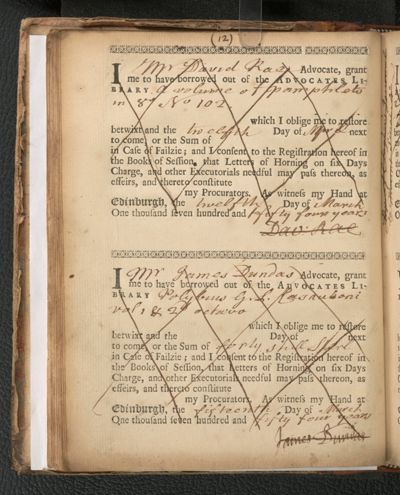 (12)
I Mr David Rae Advocate, grant
me to have borrowed out of the ADVOCATES LI-
BRARY A volume of pamphlets
in 8º No 102.
which I oblige me to restore
betwixt and the twelfth Day of next
to come, or the Sum of
in Case of Failzie; and I consent to the Registration hereof in
the Books of Session, that Letters of Horning on six Days
Charge, and other Executorials needful may pass thereon, as
effeirs, and thereto constitute
my Procurators. As witness my Hand at
Edinburgh, the twelfth Day of March
One thousand seven hundred and fifty four years
Dav Rae
I Mr James Dundas Advocate, grant
me to have borrowed out of the ADVOCATES LI-
BRARY Polybius G.L. Casauboni
vol. 1 & 2d octavo
which I oblige me to restore
betwixt and the Day of next
to come, or the Sum of forty shill Ster
in Case of Failzie; and I consent to the Registration hereof in
the Books of Session, that Letters of Horning on six Days
Charge, and other Executorials needful may pass thereon, as
effeirs, and thereto constitute
my Procurators. As witness my Hand at
Edinburgh, the fifteenth Day of March
One thousand seven hundred and fifty four years
James Dundas